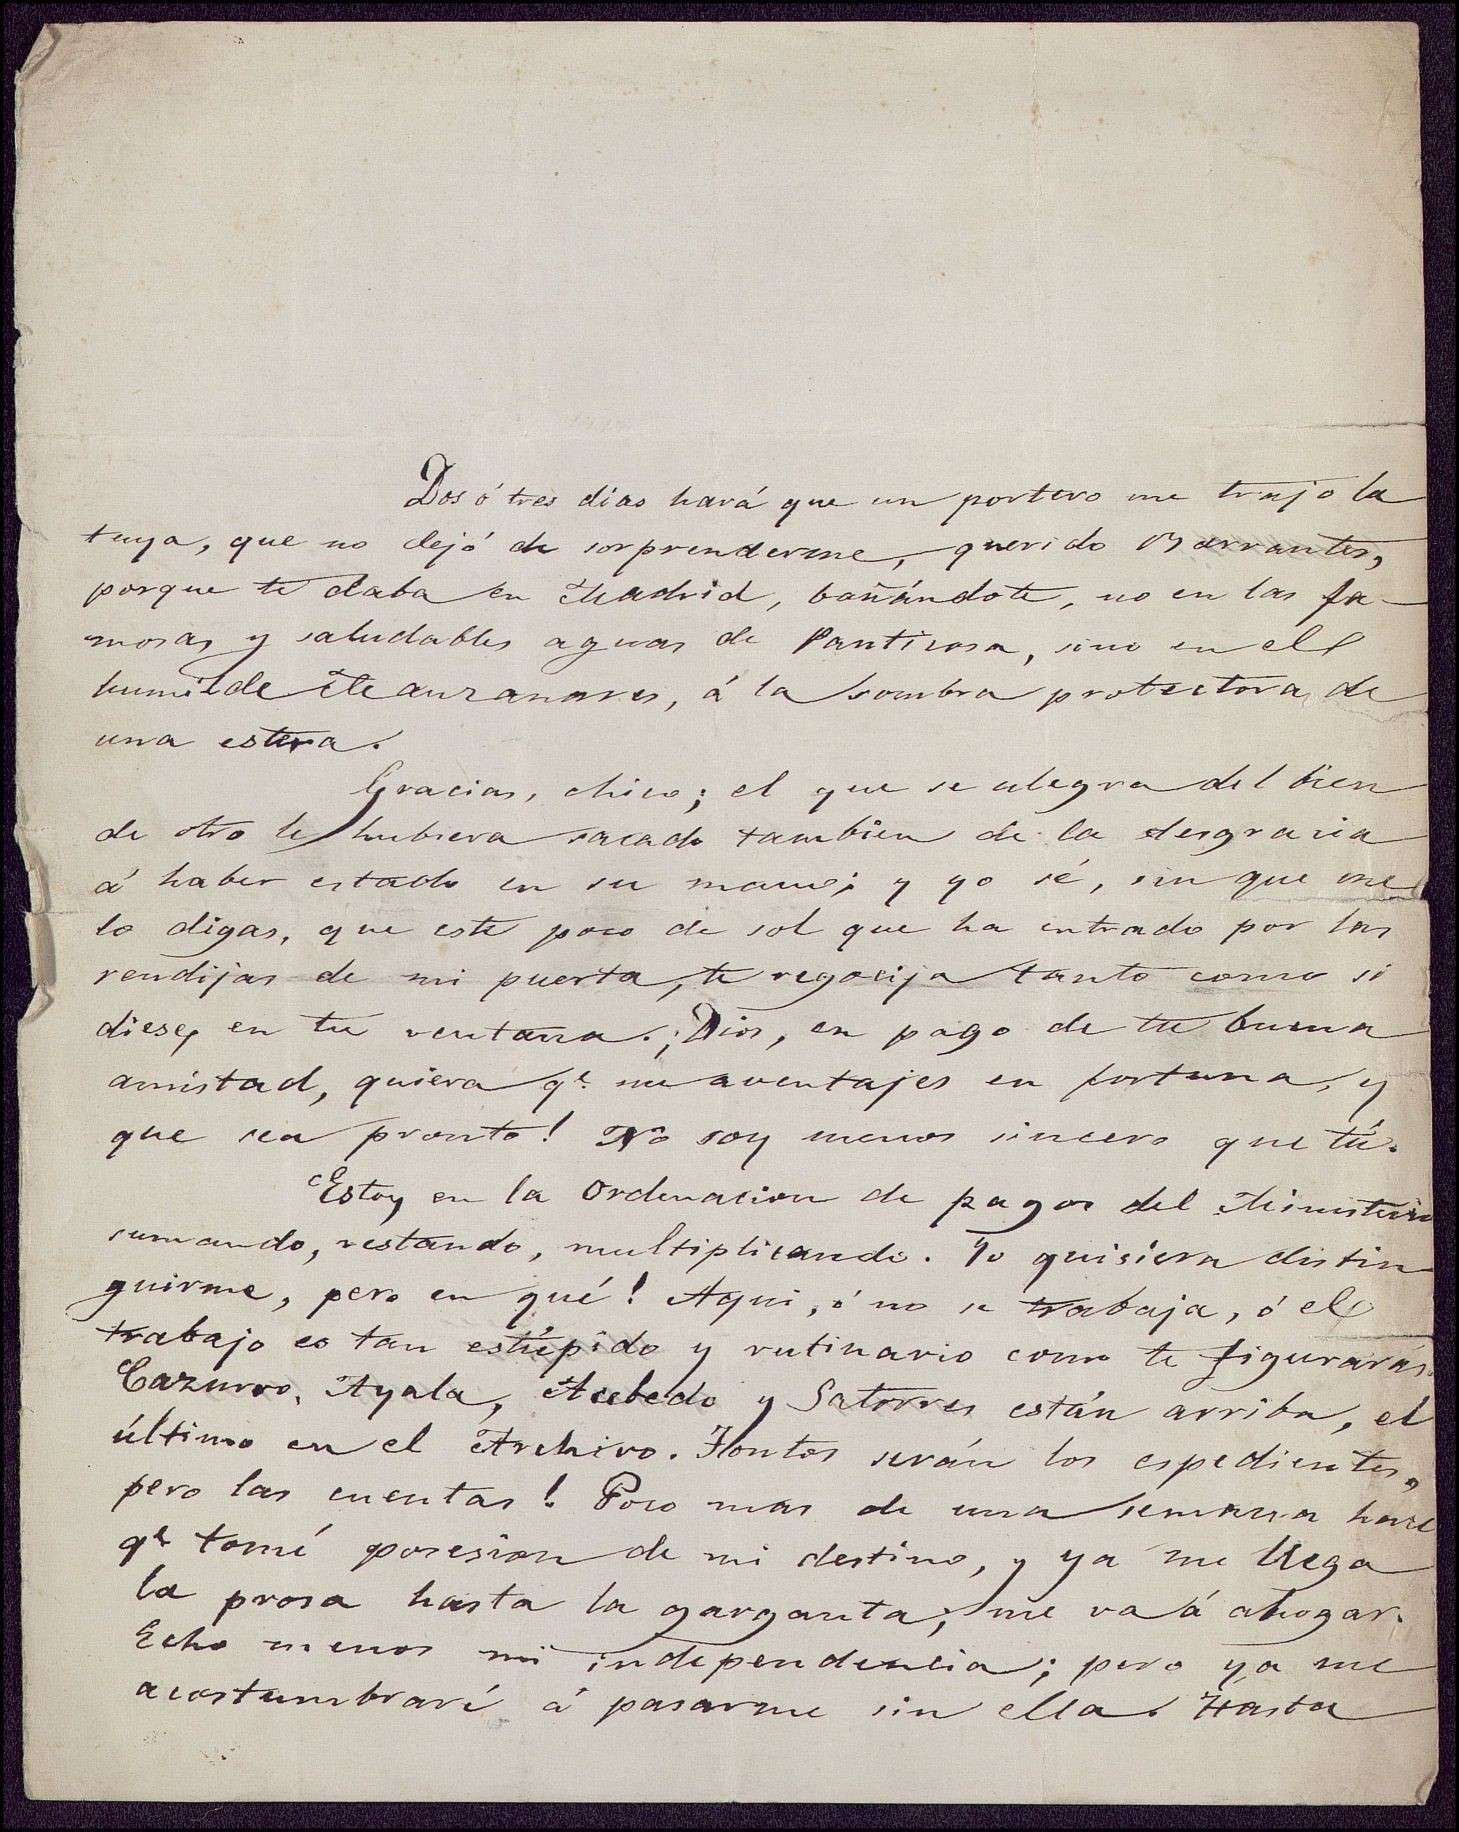 Dos ó tres dias hará que un portero me trajo la
tuya, que no dejó de sorprenderme, querido Barrantes,
porque te daba en Madrid, bañándote, no en las fa-
mosas y saludables aguas de Panticosa, sino en el
humilde Manzanares, á la sombra protectora de
una estera.
Gracias, chico; el que se alegra del bien
de otro le hubiera sacado tambien de la desgracia
á haber estado en su mano; y yo sé, sin que me
lo digas, que este poco de sol que ha entrado por las
rendijas de mi puerta, te regocija tanto como si
diese en tu ventana. ¡Dios, en pago de tu buena
amistad, quiera qe. me aventajes en fortuna, y
que sea pronto! No soy menos sincero que tú.
Estoy en la Ordenacion de pagos del Ministerio
sumando, restando, multiplicando. Yo quisiera distin
guirme, pero en qué! Aqui, ó no se trabaja, ó el
trabajo es tan estúpido y rutinario como te figurarás.
Cazurro, Ayala, Acebedo y Satorres están arriba, el
último en el Archivo. Tontos serán los espedientes,
pero las cuentas! Poco mas de una semana hace
qe. tomé posesion de mi destino, y ya me llega
la prosa hasta la garganta; me va á ahogar.
Echo menos mi independencia; pero ya me
acostumbraré á pasarme sin ella. Hasta